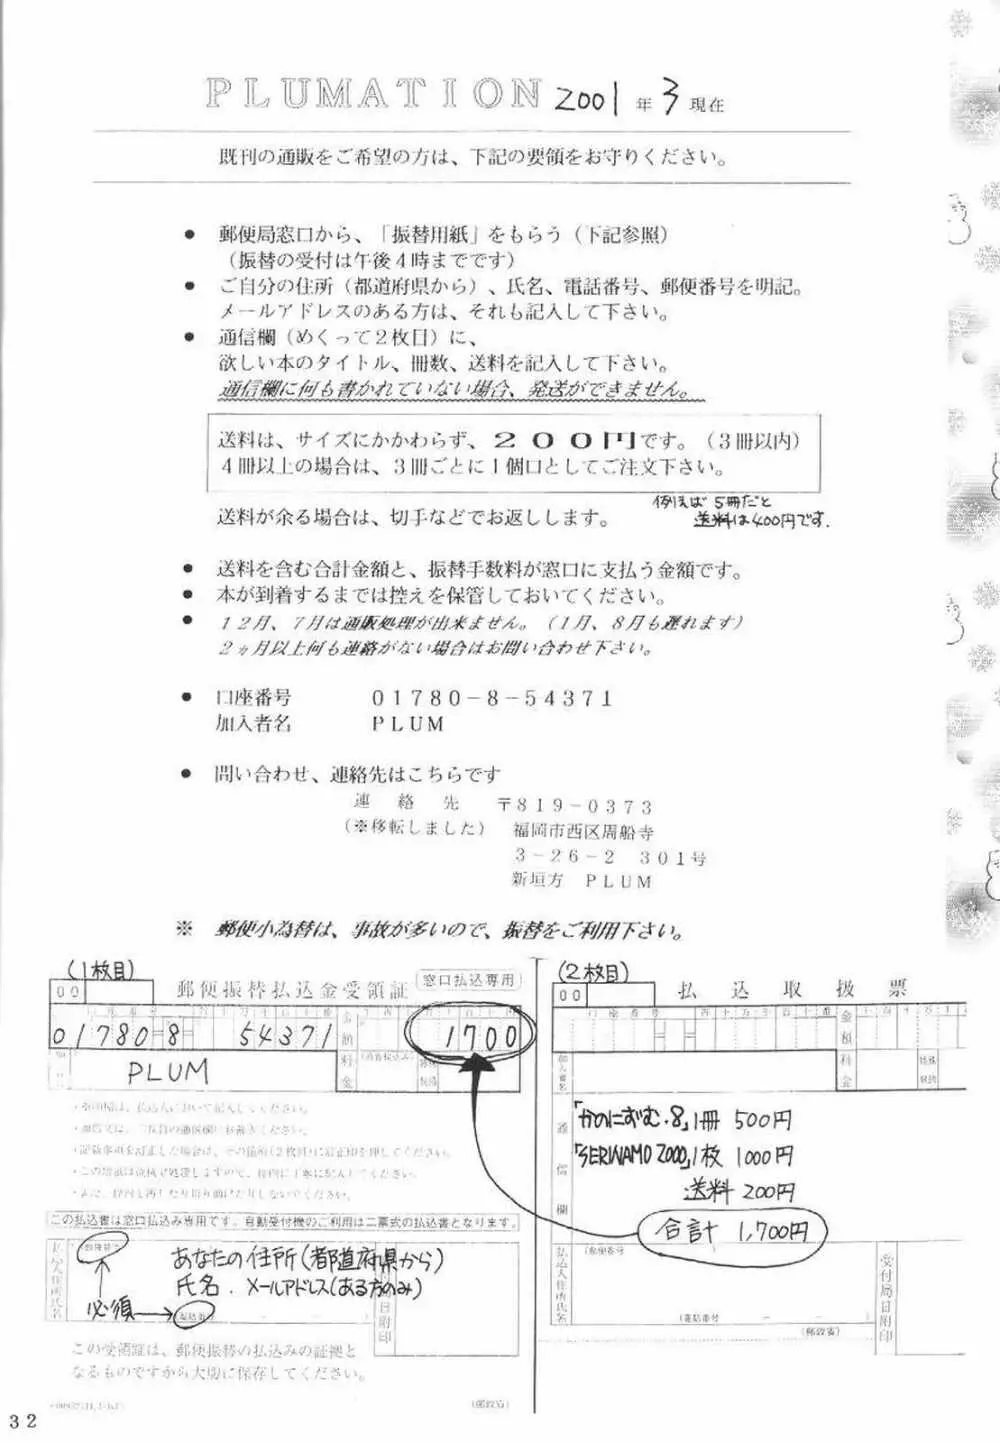 PLUMATION 2001年3現在
既刊の通販をご希望の方は、下記の要領をお守りください。
● 郵便局窓口から、「振替用紙」をもらう（下記参照）
（振替の受付は午後４時までです）
● ご自分の住所（都道府県から）、氏名、電話番号、郵便番号を明記。
メールアドレスのある方は、それも記入して下さい。
● 通信欄（めくって２枚目）に、
欲しい本のタイトル、冊数、送料を記入して下さい。
通信欄に何も書かれていない場合、発送ができません。
送料は、サイズにかかわらず、２００円です。（３冊以内）
４冊以上の場合は、３冊ごとに１個口としてご注文下さい。
例えば 5冊だと
送料は400円です.
送料が余る場合は、切手などでお返しします。
● 送料を含む合計金額と、振替手数料が窓口に支払う金額です。
● 本が到着するまでは控えを保管しておいてください。
● １２月、７月は通販処理が出来ません。（１月、８月も遅れます）
２ヵ月以上何も連絡がない場合はお問い合わせ下さい。
● 口座番号 ０１７８０－８－５４３７１
加入者名 ＰＬＵＭ
● 問い合わせ、連絡先はこちらです
連絡先 〒８１９－０３７３
（※移転しました） 福岡市西区周船寺
３－２６－２ ３０１号
新垣方 ＰＬＵＭ
※ 郵便小為替は、事故が多いので、振替をご利用下さい。
(1枚目)
00 郵便振替払込金受領証 窓口払込専用
01780 8 54371 金額 1700
PLUM 料金
この払込書は窓口払込み専用です。自動受付機のご利用は二票式の払込書となります。
払込人住所氏名
あなたの住所(都道府県から)
氏名. メールアドレス(ある方のみ)
必須
日附印
この受領証は、郵便振替の払込みの証拠と
なるものですから大切に保存してください。
（郵政省）
(2枚目)
00 払込取扱票
金額
加入者名 料金 特殊取扱
通信欄
「かのにずむ.8」1冊 500円
「SERIWAMO 2000」1枚 1000円
送料 200円
合計 1,700円
払込人住所氏名
（郵便番号
（電話番号
（郵政省）
受付局日附印
32